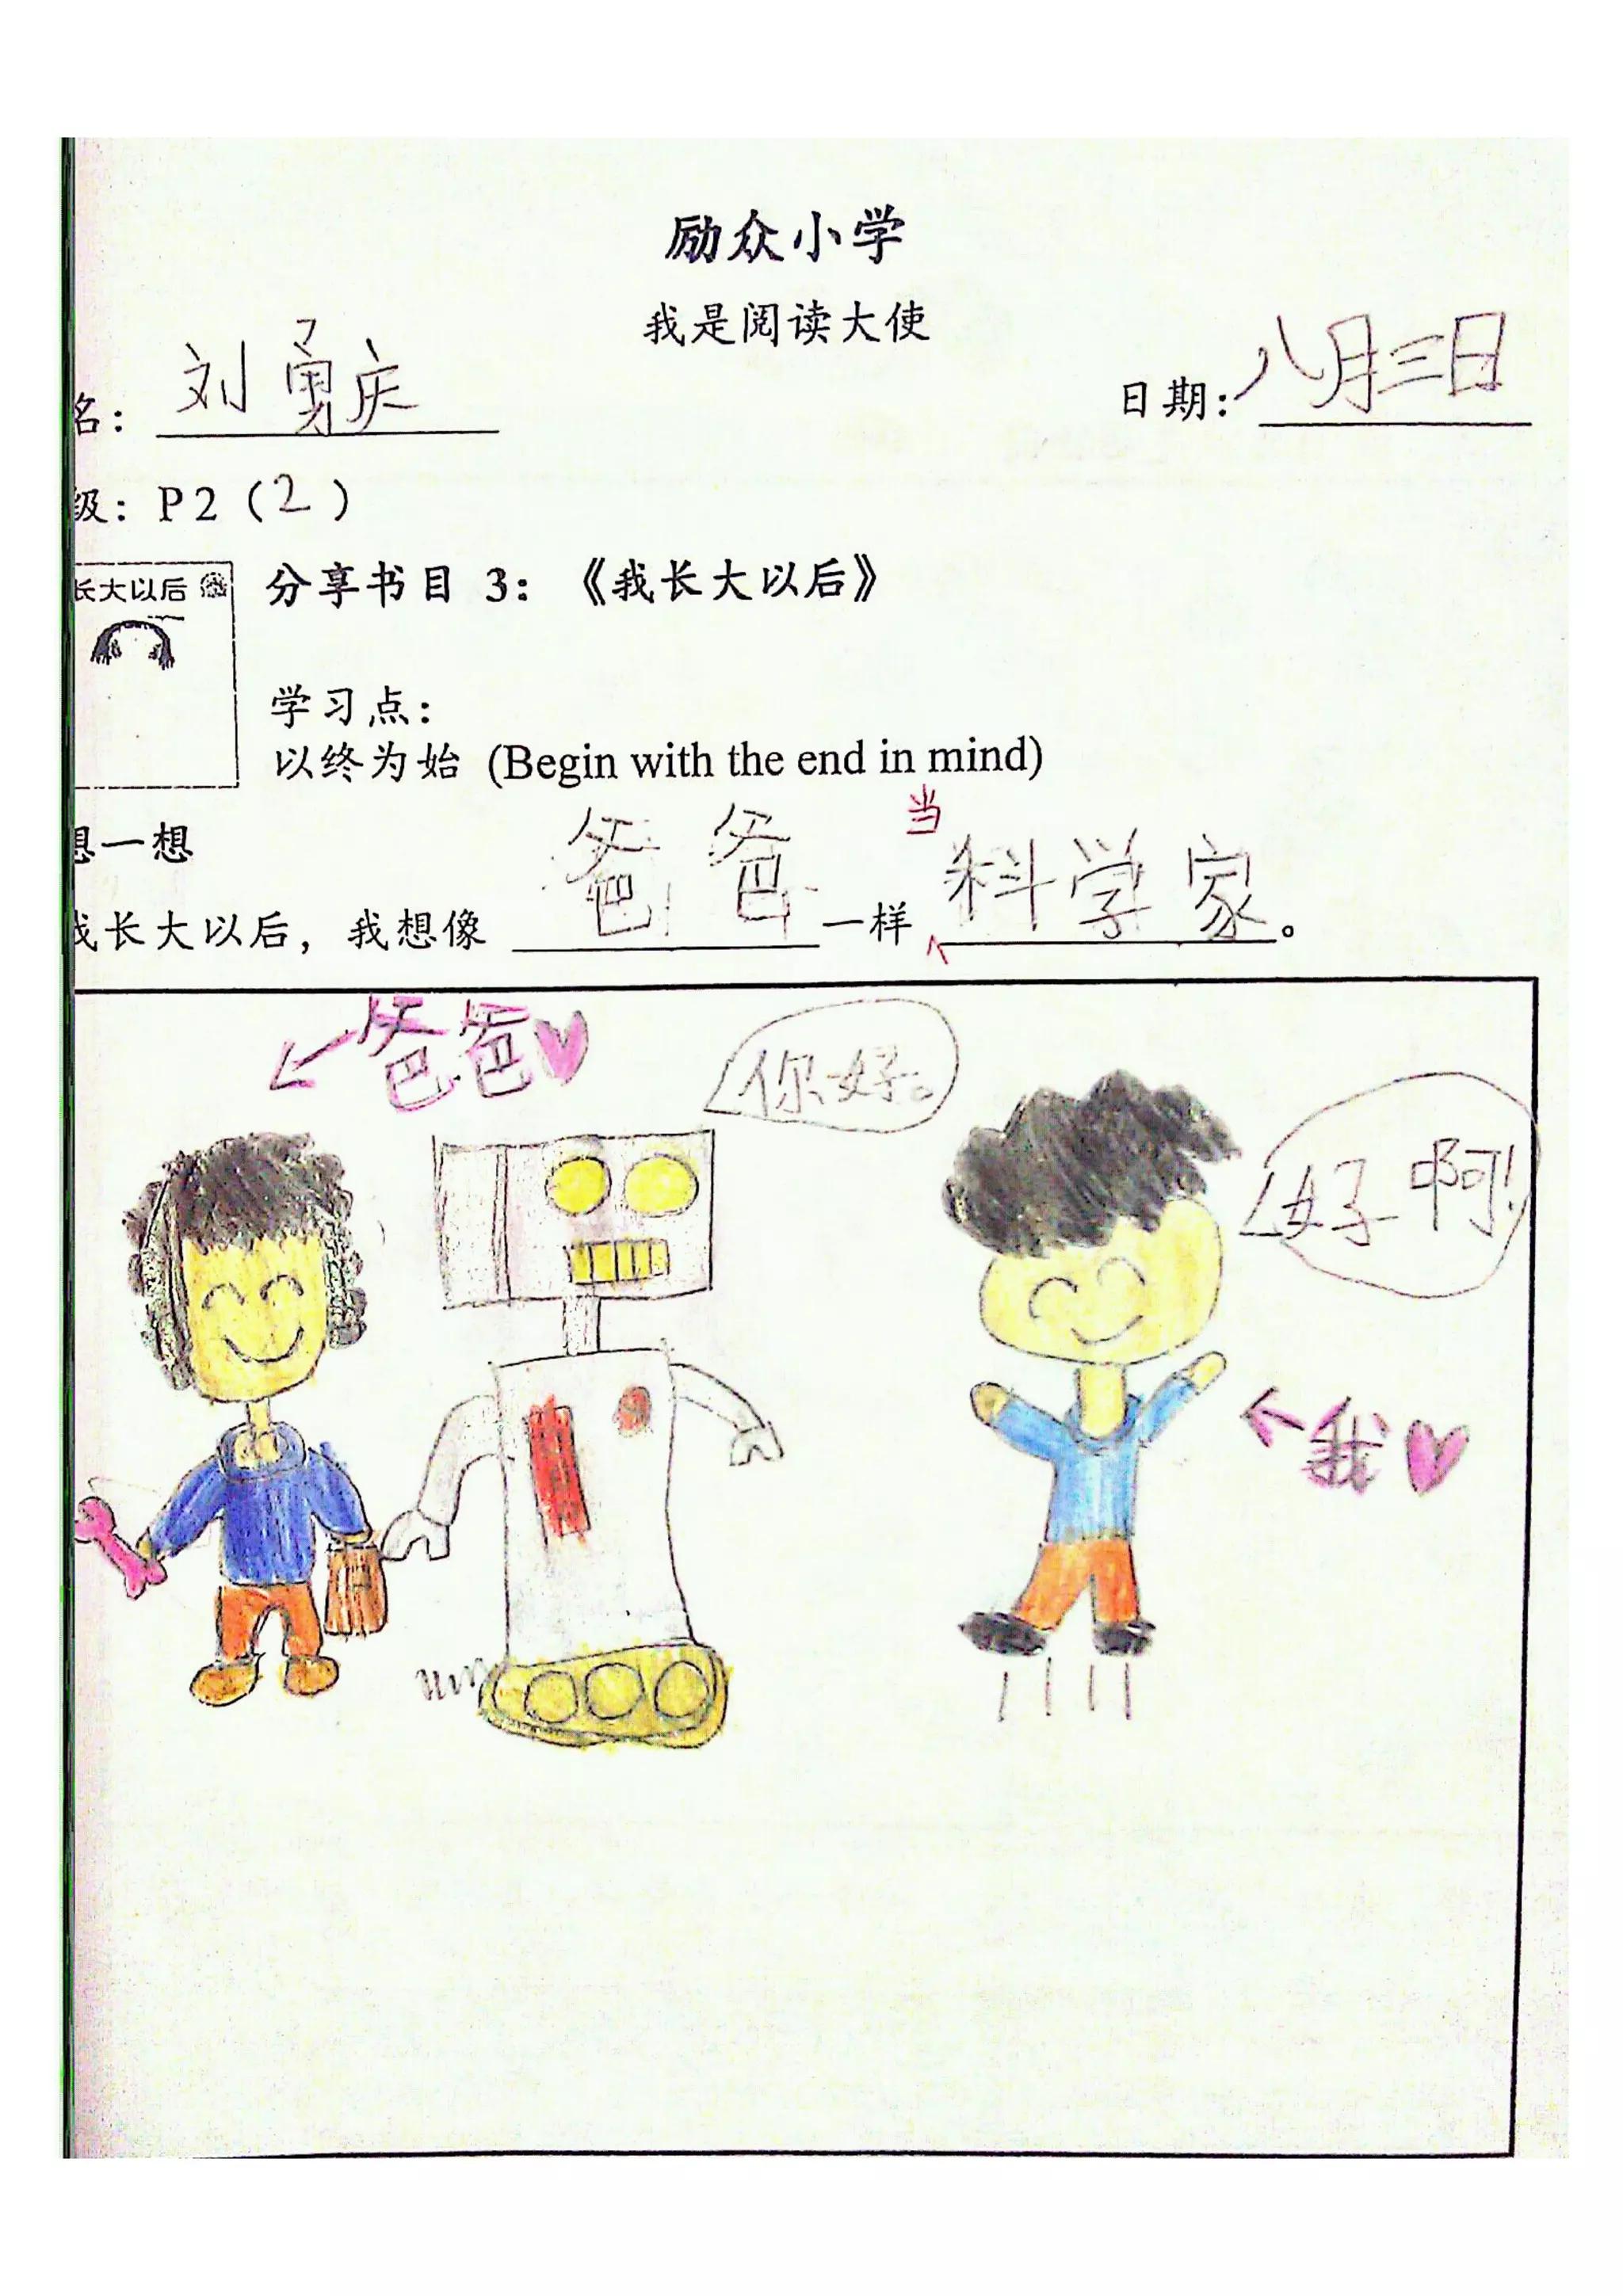 励众小学
我是阅读大使
名： 刘勇庆
日期： 八月三日
级： P2（2）
长大以后
分享书目 3：《我长大以后》
学习点：
以终为始 (Begin with the end in mind)
想一想
当
我长大以后，我想像 爸爸 一样 科学家。
爸爸
你好。
好啊！
我